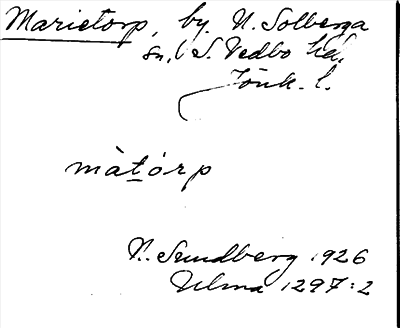 Marietorp, by. N. Solberga
sn., S. Vedbo hd.,
Jönk. l.
màtórp
N. Sundberg 1926
Ulma 1297:2